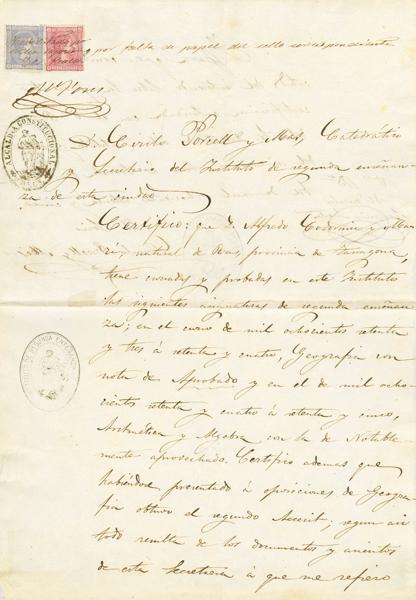 por falta de papel del sello correspondiente
ALCALDIA CONSTITUCIONAL
D. Cirilo Porcell y Mas, Catedratico
y Secretario del Instituto de segunda enseñan-
za de esta ciudad
Certifico: que D. Alfredo y
natural de Reus, provincia de Tarragona,
tiene cursadas y probadas en este Instituto
las siguientes asignaturas de segunda enseñan-
za; en el curso de mil ochocientos setenta
y tres á setenta y cuatro, Geografia con
nota de Aprobado y en el de mil ocho-
cientos setenta y cuatro á setenta y cinco,
Aritmética y Algebra con la de Notable
mente aprovechado. Certifico ademas que
habiéndose presentado á oposiciones de Geogra-
fia obtuvo el segundo Accesit; segun asi
todo resulta de los documentos y asientos
de esta Secretaria á que me refiero